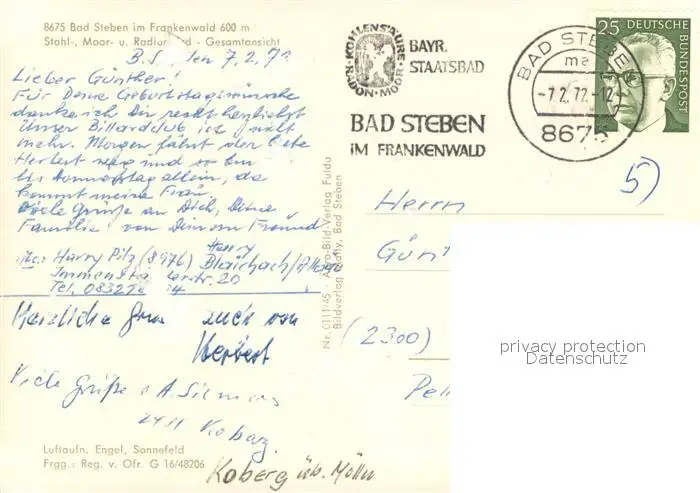 8675 Bad Steben im Frankenwald 600 m
Stahl-, Moor- u. Radiumbad - Gesamtansicht
B.S., den 7.2.72
Lieber Günther!
Für Deine Geburtstagswünsche
danke ich Dir recht herzlichst
unser Billardclub ist nicht
mehr. Morgen fährt der liebe
Herbert weg und so bin
bis Donnerstag allein, da
kommt meine Frau.
Viele Grüße an Dich, Deine
Familie von Deinem Freund
Henry
Harry Pilz (8976) Blaichach/Allgäu
Immenstädterstr. 20
Tel. 08321
Herzliche Grüße auch von
Herbert
Viele Grüße A. Siemens
2411 Koberg
Luftaufn. Engel, Sonnefeld
Frgg.: Reg. v. Ofr. G 16/48206
Koberg üb. Mölln
Nr. 0111/45 · Aero-Bild-Verlag Fulda
Bildverlag Bad Steben
KOHLENSÄURE
RADON · MOOR
BAYR.
STAATSBAD
BAD STEBEN
IM FRANKENWALD
BAD STEBEN
ma
-7.2.72.-12
8675
25
DEUTSCHE
BUNDESPOST
5)
Herrn
(2300)
privacy protection
Datenschutz